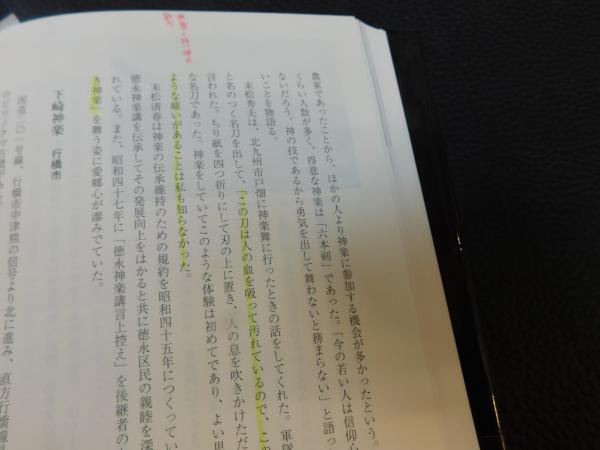 農家であったことから、ほかの人より神楽に参加する機会が多かったという。
くらい人数が多く、得意な神楽は「六本剣」であった。「今の若い人は信仰
ないだろう。神の技であるから勇気を出して舞わないと務まらない」と語っ
いことを物語る。
末松秀夫は、北九州市戸畑に神楽舞に行ったときの話をしてくれた。軍隊
と名のつく名刀を出して、「この刀は人の血を吸って汚れているので、この
言われた。ちり紙を四つ折りにして刃の上に置き、人の息を吹きかけただ
な名刀であった。神楽をしていてこのような体験は初めてであり、よい思
ような祓いがあることは私も知らなかった。
末松清春は神楽の伝承維持のための規約を昭和四十五年につくってい
徳永神楽講を伝承してその発展向上をはかると共に徳永区民の親睦を深
れている。また、昭和四十七年に「徳永神楽講言上控え」を後継者の
き神楽」を舞う姿に愛郷心が滲みでていた。
下崎神楽 行橋市
国道二〇一号線、行橋市中津熊の信号より北に進み、直方行橋線